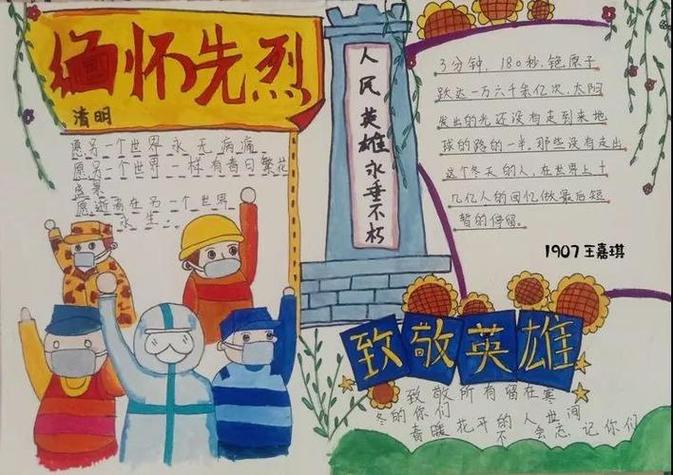 缅怀先烈
清明
愿另一个世界永无病痛
愿另一个世界一样有着日繁花
盛景
愿逝者在另一个世界
永生...
人民英雄永垂不朽
3分钟, 180秒, 铯原子
跃迁一万六千余亿次, 太阳
发出的光还没有走到来地
球的路的一半, 那些没有走出
这个冬天的人, 在世界上十
几亿人的回忆做最后短
暂的停留.
1907 王嘉琪
致敬英雄
致敬所有留在寒
冬的你们
春暖花开的人世间
不会忘记你们